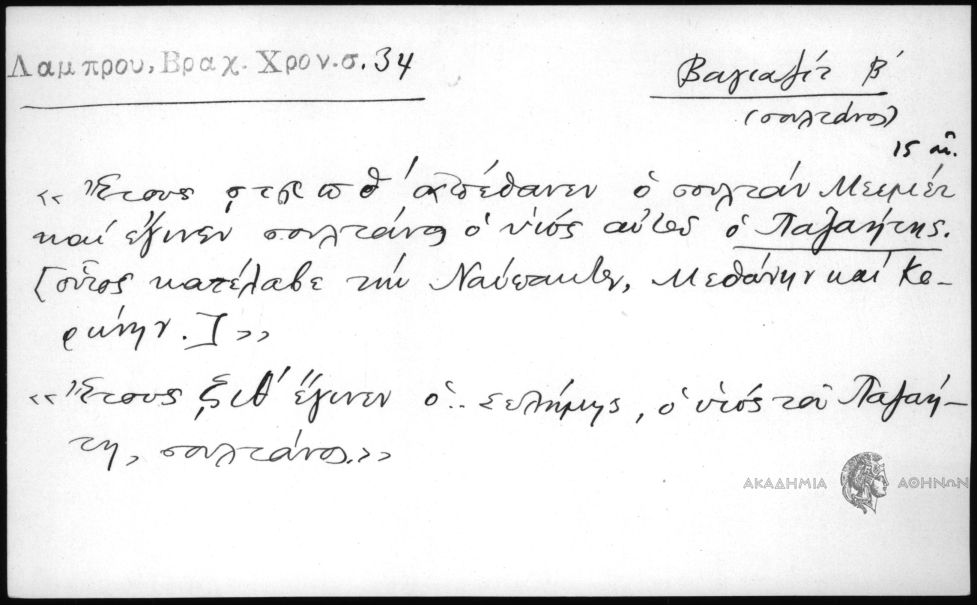 Λαμπρου, Βραχ. Χρον. σ. 34
Βαγιαζίτ Β΄
(σουλτάνος)
15 αἰ.
«Ἔτους ͵ϛϡπθ΄ ἀπέθανεν ὁ σουλτάν Μεεμέτ
καί ἔγινεν σουλτάνος ὁ υἱός αὐτοῦ ὁ Παζαήτης.
[οὗτος κατέλαβε τήν Ναύπακτον, Μεθώνην καί Κο-
ρώνην.]»
«Ἔτους ζιθ΄ ἔγινεν ὁ.. Σελήμης, ὁ υἱός τοῦ Παζαή-
τη, σουλτάνος.»
ΑΚΑΔΗΜΙΑ ΑΘΗΝΩΝ